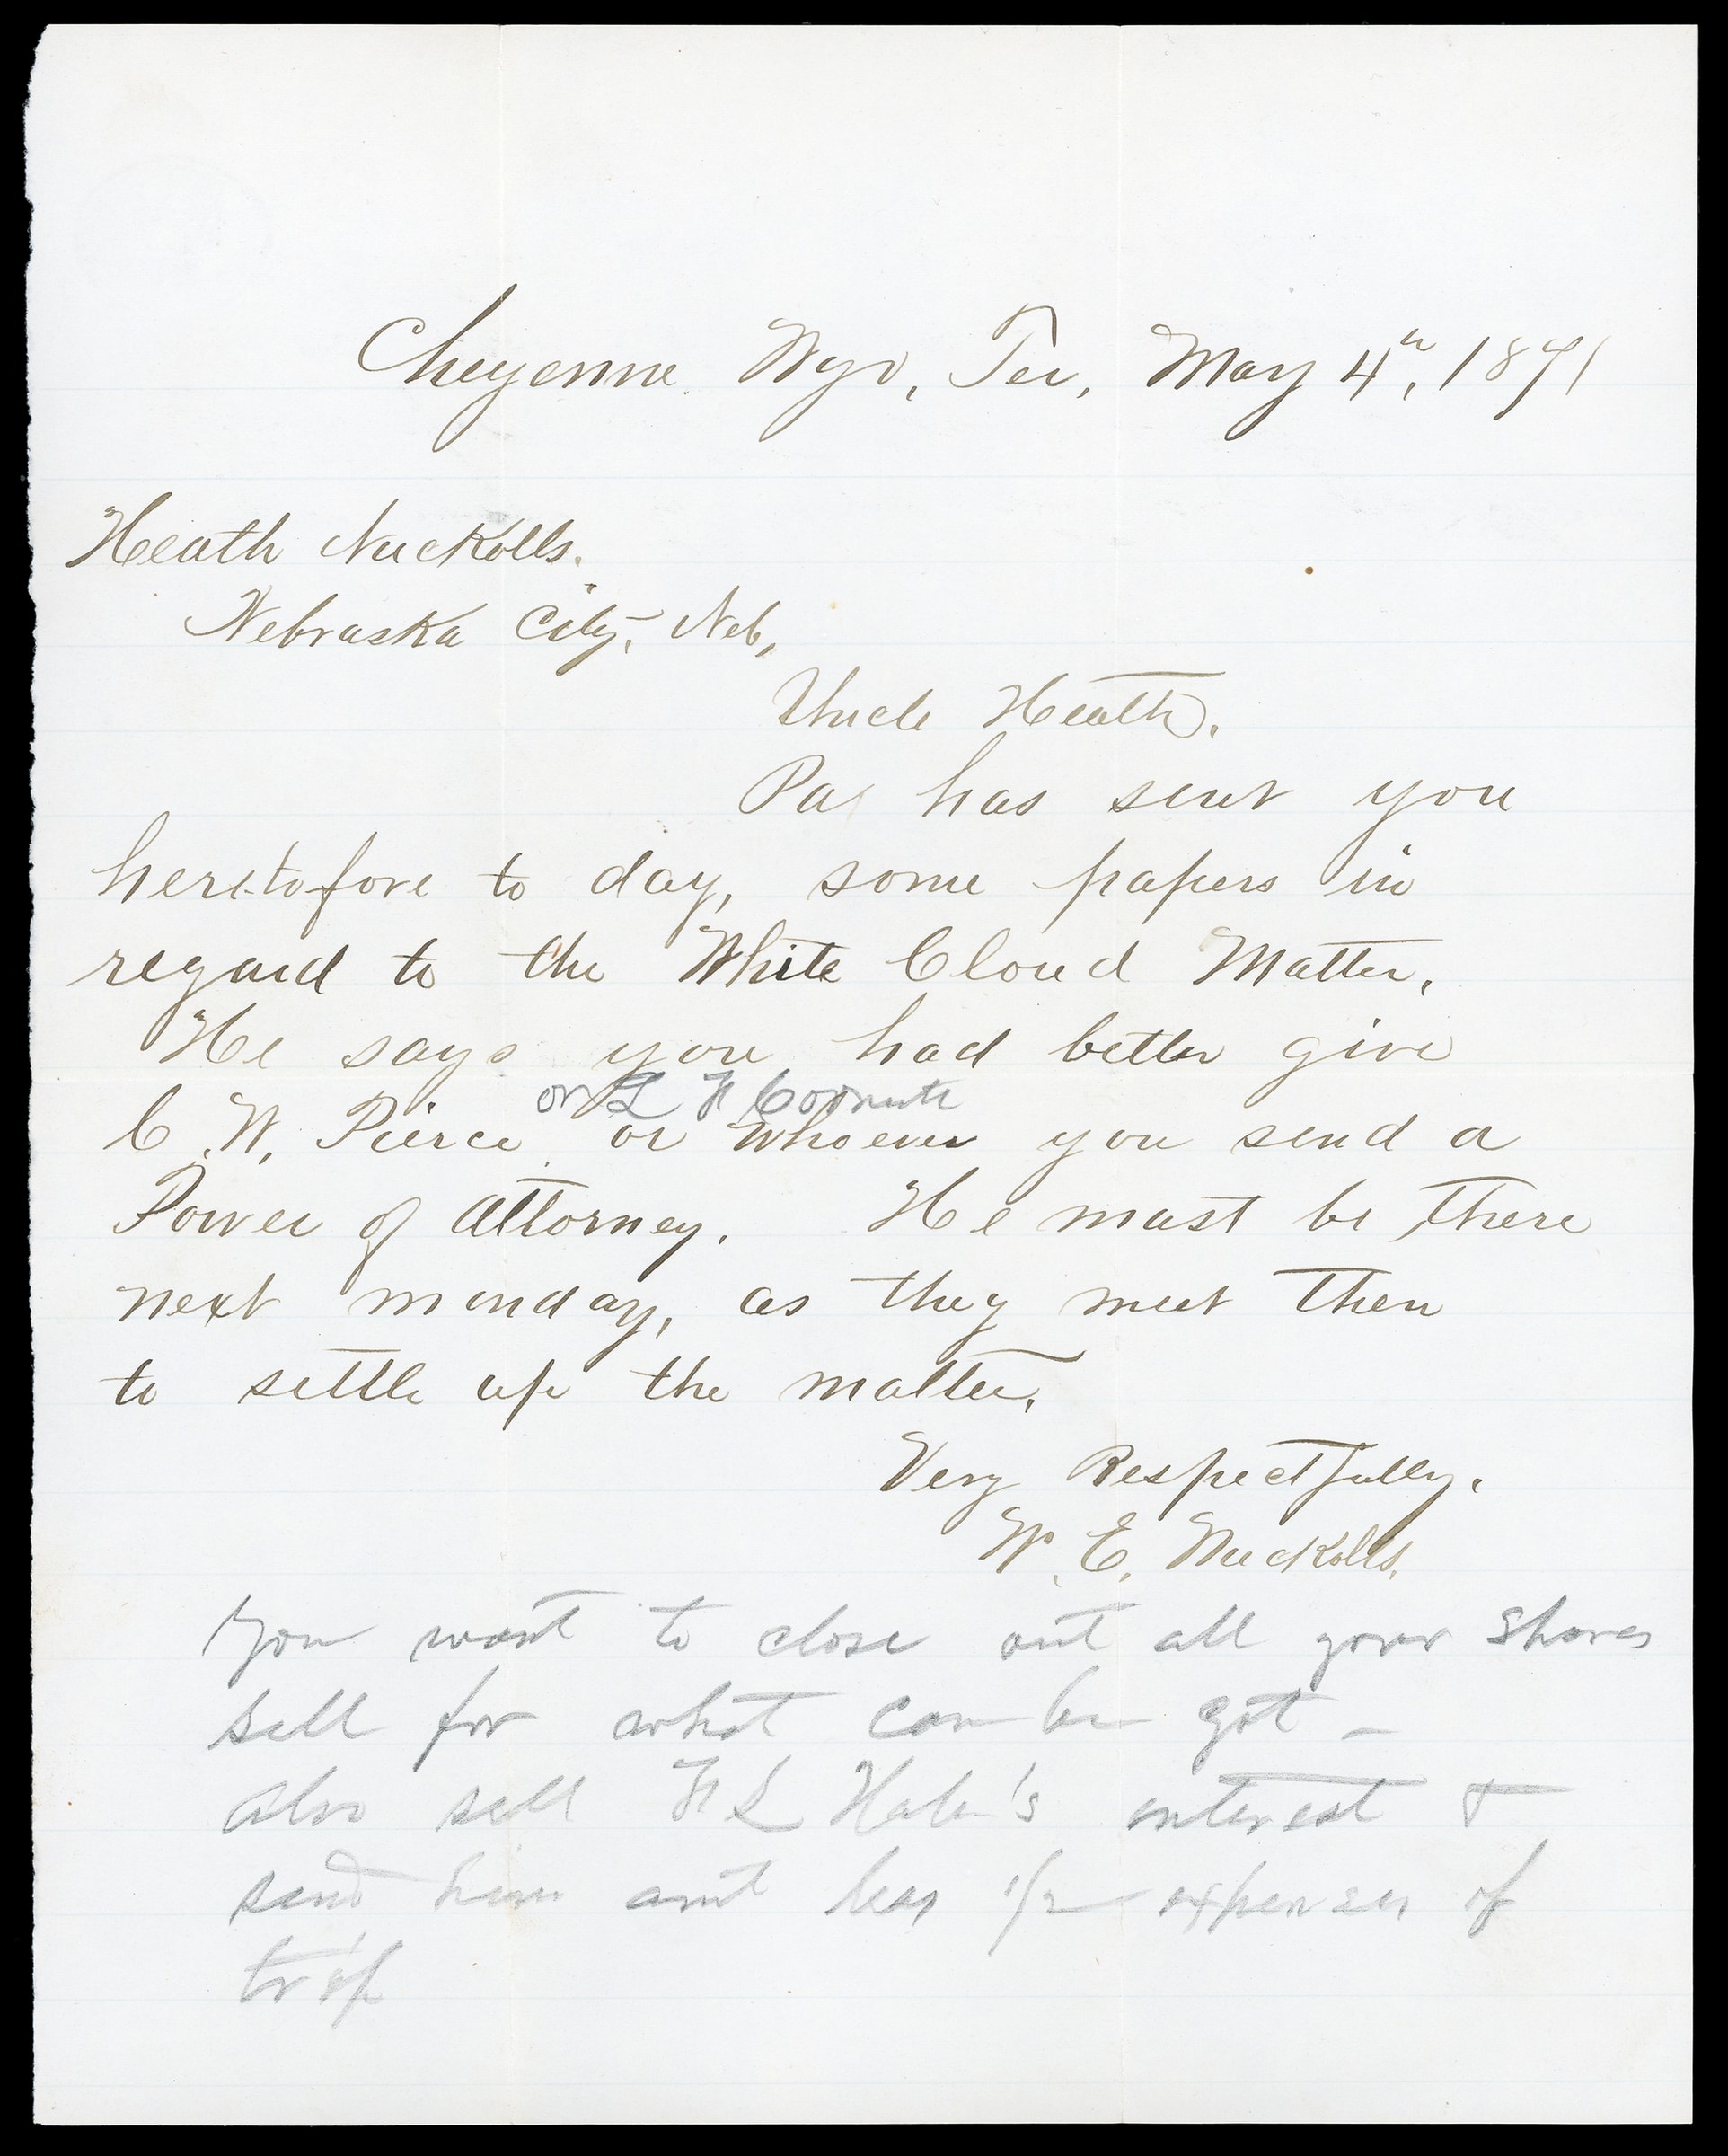 Cheyenne. Wyo, Ter, May 4th, 1871
Heath Nuckolls.
Nebraska City, Neb,
Uncle Heath,
Pa has sent you
heretofore to day, some papers in
regard to the White Cloud Matter.
He says you had better give
or L F
C. W. Pierce or whoever you send a
Power of Attorney. He must be there
next monday, as they meet then
to settle up the matter.
Very Respectfully,
W. E. Nuckolls.
You want to close out all your shares
sell for what can be got –
also sell interest &
send him amt less 1/2 expenses of
trip